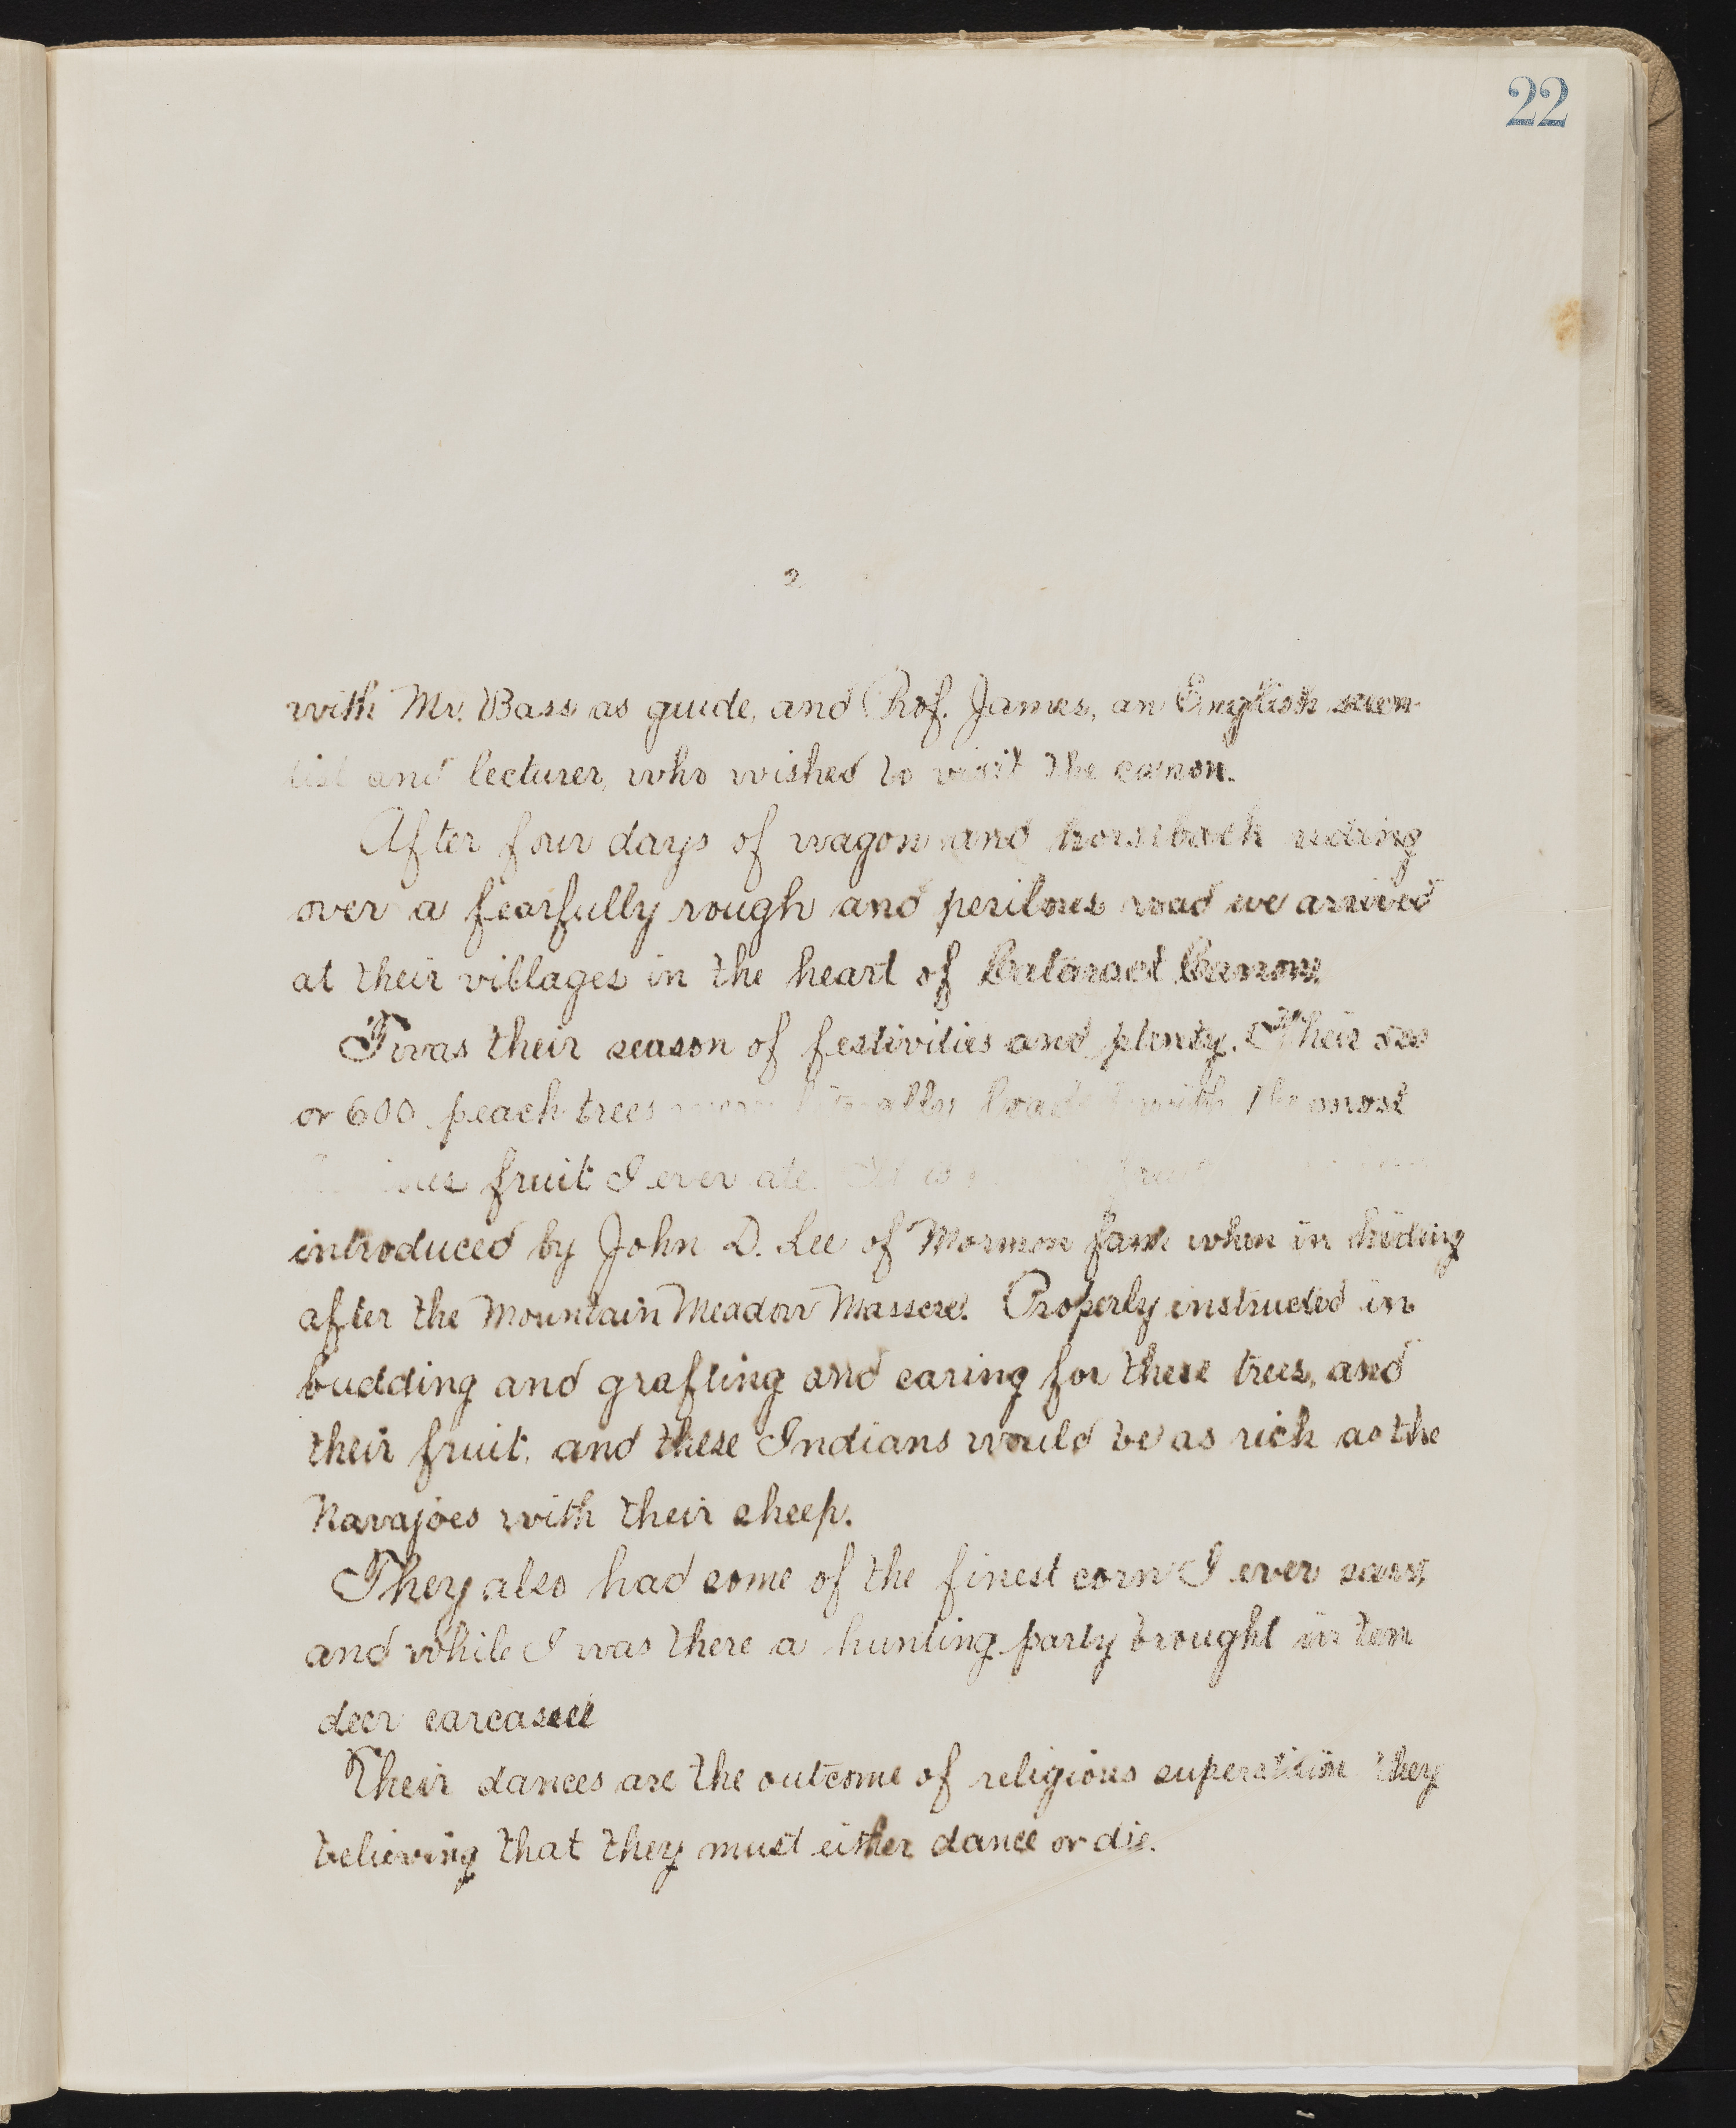 22
2
with Mr. Bass as guide, and Prof. James, an English scien-
tist and lecturer, who wished to visit the canon.
After four days of wagon and horseback riding
over a fearfully rough and perilous road we arrived
at their villages in the heart of Cataract Canon.
Twas their season of festivities and plenty. Their 500
or 600 peach trees were literally loaded with the most
fruit I ever ate.
introduced by John D. Lee of Mormon fame when in hiding
after the Mountain Meadow Massacre. Properly instructed in
budding and grafting and caring for these trees, and
their fruit, and these Indians would be as rich as the
Navajoes with their sheep.
They also had some of the finest corn I ever saw,
and while I was there a hunting party brought in ten
deer carcasses
Their dances are the outcome of religious superstition they
believing that they must either dance or die.